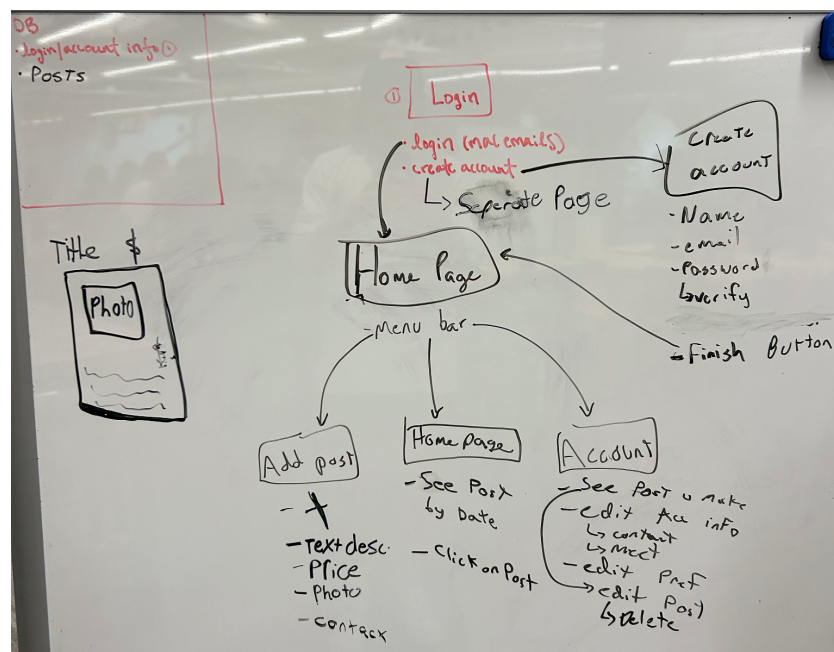 DB
• login/account info ①
• Posts
① Login
• login (mal emails)
• create account
↳ Seperate Page
Create
account
- Name
- email
- Password
↳ verify
- Finish Button
Title $
Photo
Home Page
- Menu bar
Add post
-
- Text desc.
- Price
- Photo
- contact
Home page
- See Post
by Date
- Click on Post
Account
- See Post u make
- edit Acc info
↳ contact
↳ meet
- edit Pref
→ edit Post
↳ Delete